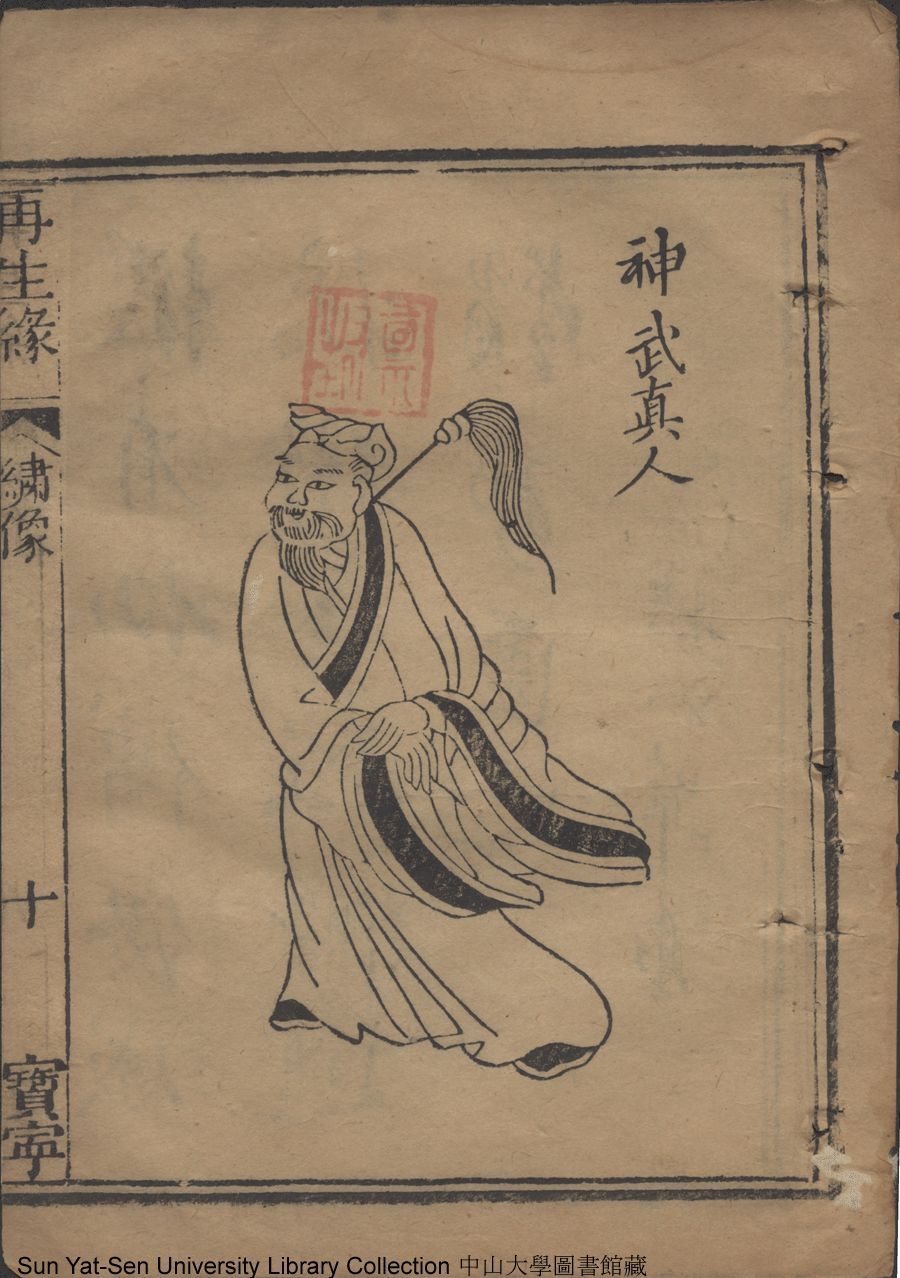 神武真人
再生緣
繡像
十
寶寧
Sun Yat-Sen University Library Collection 中山大學圖書館藏